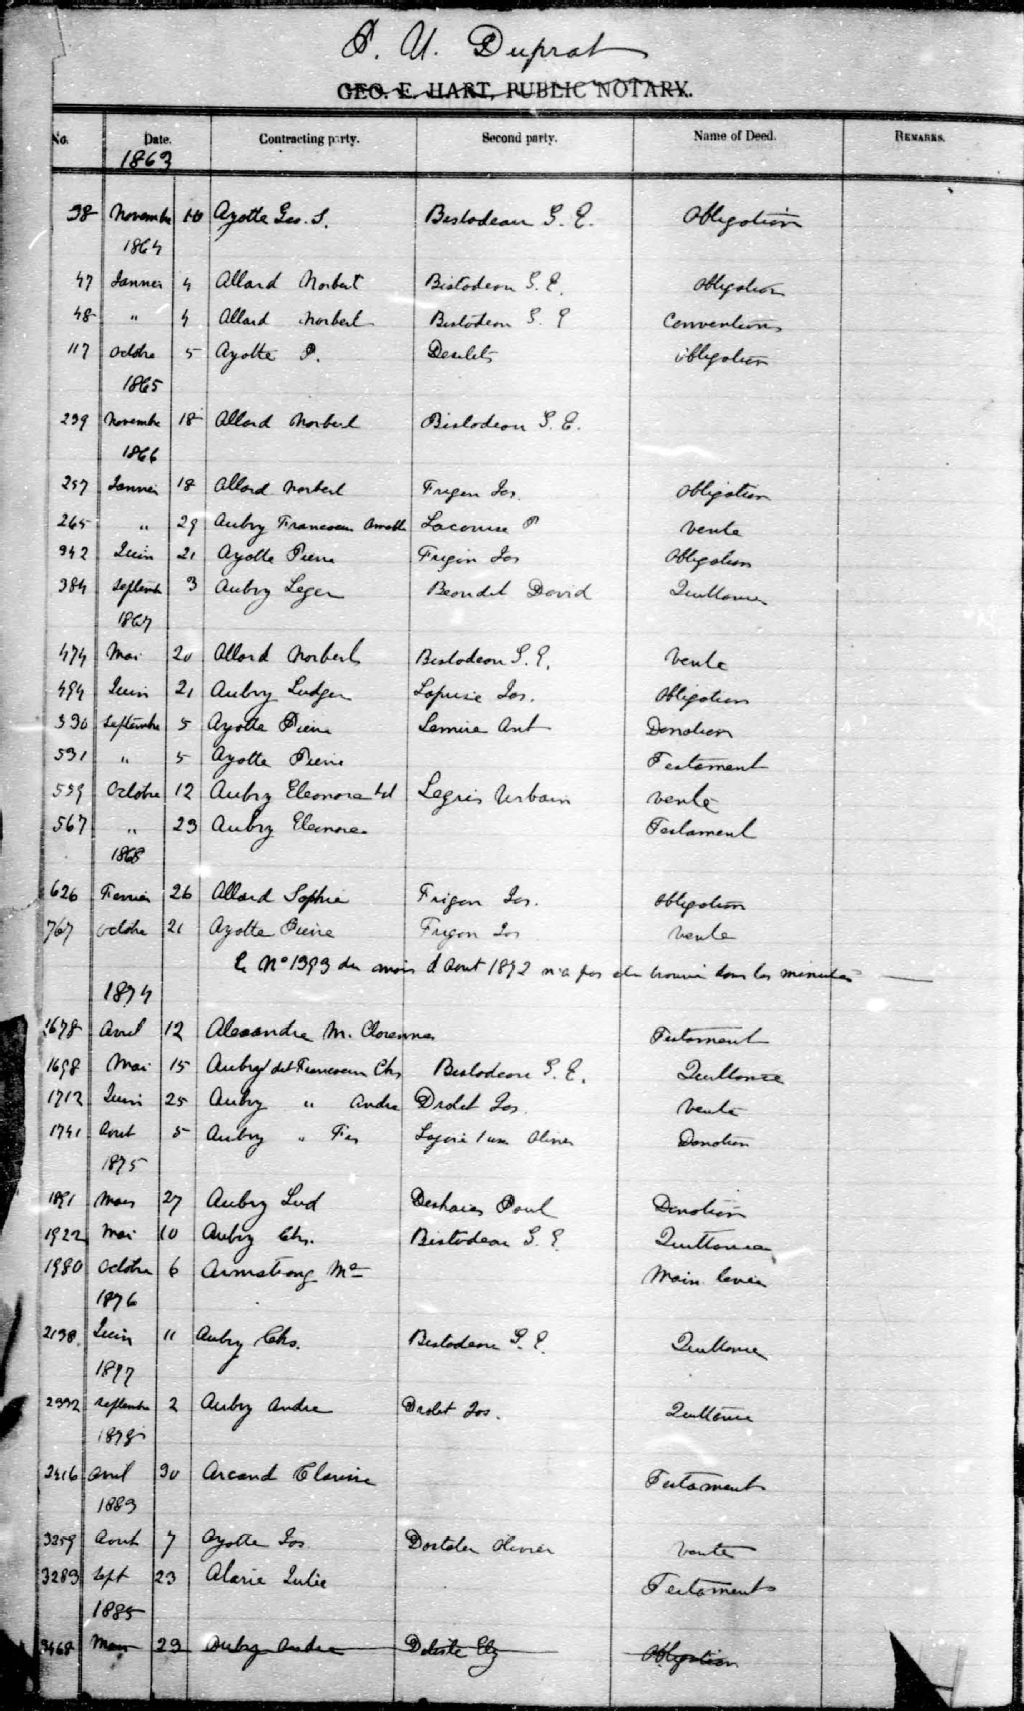 P. U. Duprat
GEO. E. HART, PUBLIC NOTARY.
No. Date. Contracting party. Second party. Name of Deed. REMARKS.
1863
38 Novembre 10 Ayotte Geo. S. Bistodeau G. E. Obligation
1864
47 Janvier 4 Allard Norbert Bistodeau G. E. Obligation
48 " 4 Allard Norbert Bistodeau G. E Conventions
117 Octobre 5 Ayotte P. Desilets Obligation
1865
239 Novembre 18 Allard Norbert Bistodeau G. E.
1866
257 Janvier 18 Allard Norbert Frigon Jos. Obligation
265 " 29 Aubry Francoeur Amable Lacourse P Vente
342 Juin 21 Ayotte Pierre Frigon Jos Obligation
384 Septembre 3 Aubry Leger David Quittance
1867
474 Mai 20 Allard Norbert Bistodeau G. E. Vente
494 Juin 21 Aubry Ludger Jos. Obligation
530 Septembre 5 Ayotte Pierre Lemire Ant Donation
531 " 5 Ayotte Pierre Testament
559 Octobre 12 Aubry Eleonore Legris Urbain Vente
567 " 23 Aubry Eleonore Testament
1868
626 Fevrier 26 Allard Sophie Frigon Jos. Obligation
767 Octobre 21 Ayotte Pierre Frigon Jos Vente
Le No 1393 du mois d'Aout 1872 n'a pas ete trouvé dans les minutes
1874
1678 Avril 12 Alexandre M. Testament
1698 Mai 15 Aubry dit Francoeur Chs Bistodeau G. E. Quittance
1712 Juin 25 Aubry " Andre Drolet Jos. Vente
1741 Aout 5 Aubry " Frs Olivier Donation
1875
1891 Mars 27 Aubry Lud Deshaies Paul Donation
1922 Mai 10 Aubry Chs. Bistodeau G. E. Quittance
1980 Octobre 6 Armstrong Main levée
1876
2138 Juin 11 Aubry Chs. Bistodeau G. E. Quittance
1877
2332 Septembre 2 Aubry Andre Drolet Jos. Quittance
1878
2416 Avril 30 Arcand Clarisse Testament
1883
3259 Aout 7 Ayotte Jos Dostaler Olivier Vente
3283 Sept 23 Alarie Julie Testament
1885
3468 Mars 23 Aubry Andre Delisle Elz Obligation